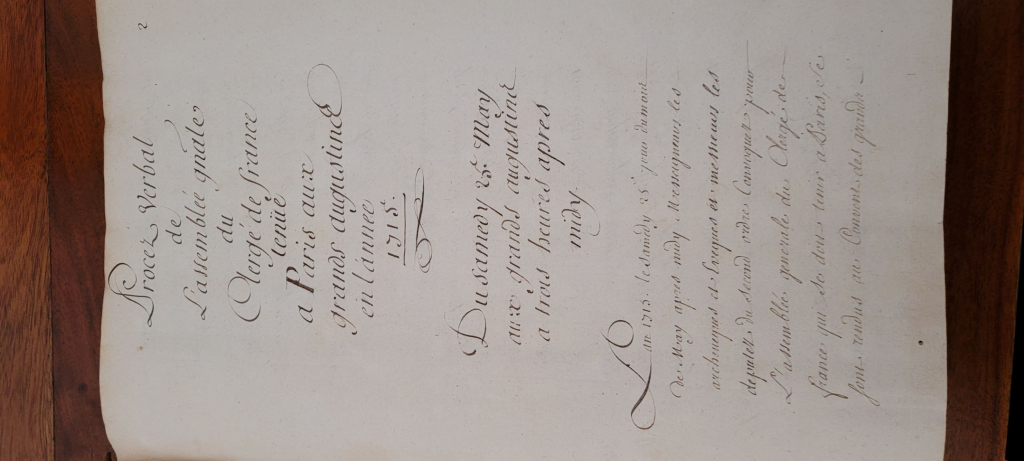 2
Procez Verbal
de
L'assemblée gñalle
du
Clergé de france
tenüe
a Paris aux
grands augustins
en lánnee
1715.
Du samedy 25e. May
aux grands augustins
a trois heures apres
midy.
L'an 1715. le samedy 25e. jour du mois
de May apres midy Messeigneurs les
archeuesques et Euesques et messieurs les
deputez du second ordre Conuoquez pour
L'assemblée generale du Clergé de
france qui se doit tenir a Paris, se
sont rendus au Conuent des grands